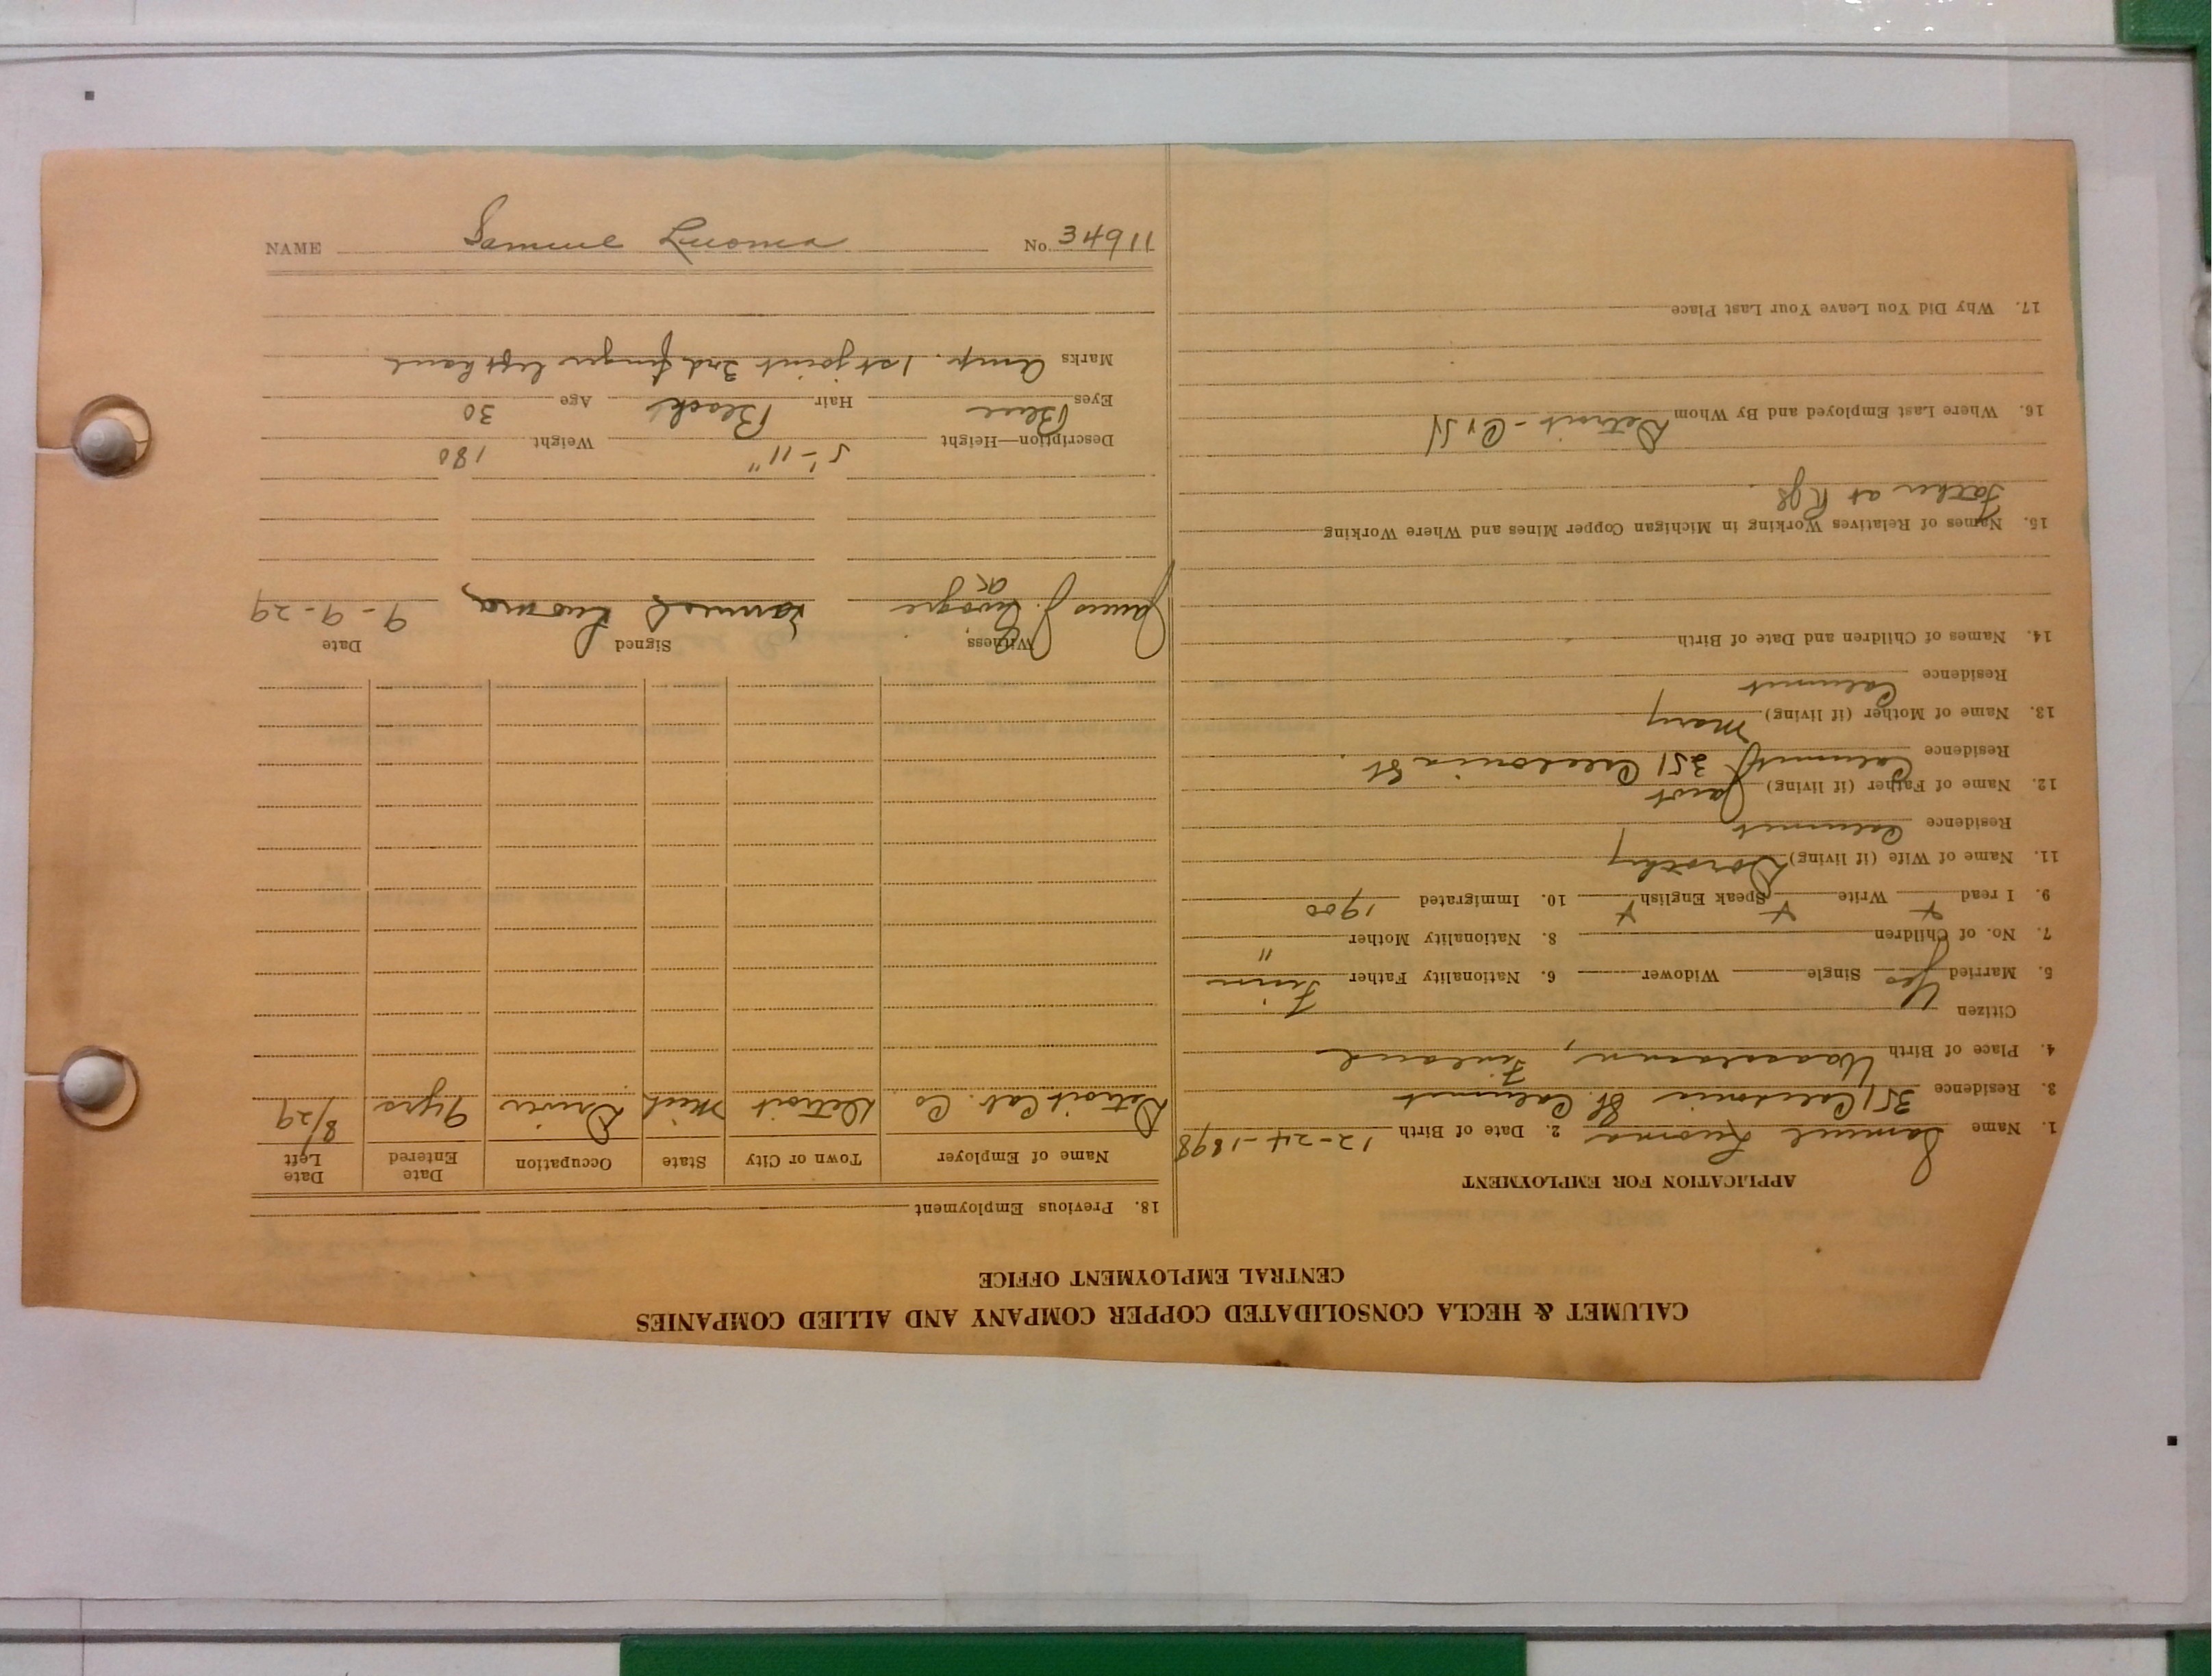 CALUMET & HECLA CONSOLIDATED COPPER COMPANY AND ALLIED COMPANIES
CENTRAL EMPLOYMENT OFFICE
APPLICATION FOR EMPLOYMENT
1. Name Samuel Luoma 2. Date of Birth 12-24-1898
3. Residence 351 Caledonia St. Calumet
4. Place of Birth Finland
Citizen
5. Married Yes Single Widower 6. Nationality Father Finn
7. No. of Children 8. Nationality Mother "
9. I read Write Speak English 10. Immigrated 1900
11. Name of Wife (if living) Dorothy
Residence Calumet
12. Name of Father (if living) Jacob
Residence Calumet 351 Caledonia St.
13. Name of Mother (if living) Mary
Residence Calumet
14. Names of Children and Date of Birth
15. Names of Relatives Working in Michigan Copper Mines and Where Working
Father at
16. Where Last Employed and By Whom Detroit -
17. Why Did You Leave Your Last Place
18. Previous Employment
Name of Employer Town or City State Occupation Date Entered Date Left
Detroit Cab. Co Detroit Mich Driver 9 yrs 8/29
Witness Signed Date
James J. Samuel Luoma 9-9-29
Description—Height 5'-11" Weight 180
Eyes Blue Hair Black Age 30
Marks Amp. 1st joint 3rd finger left hand
NAME Samuel Luoma No. 34911